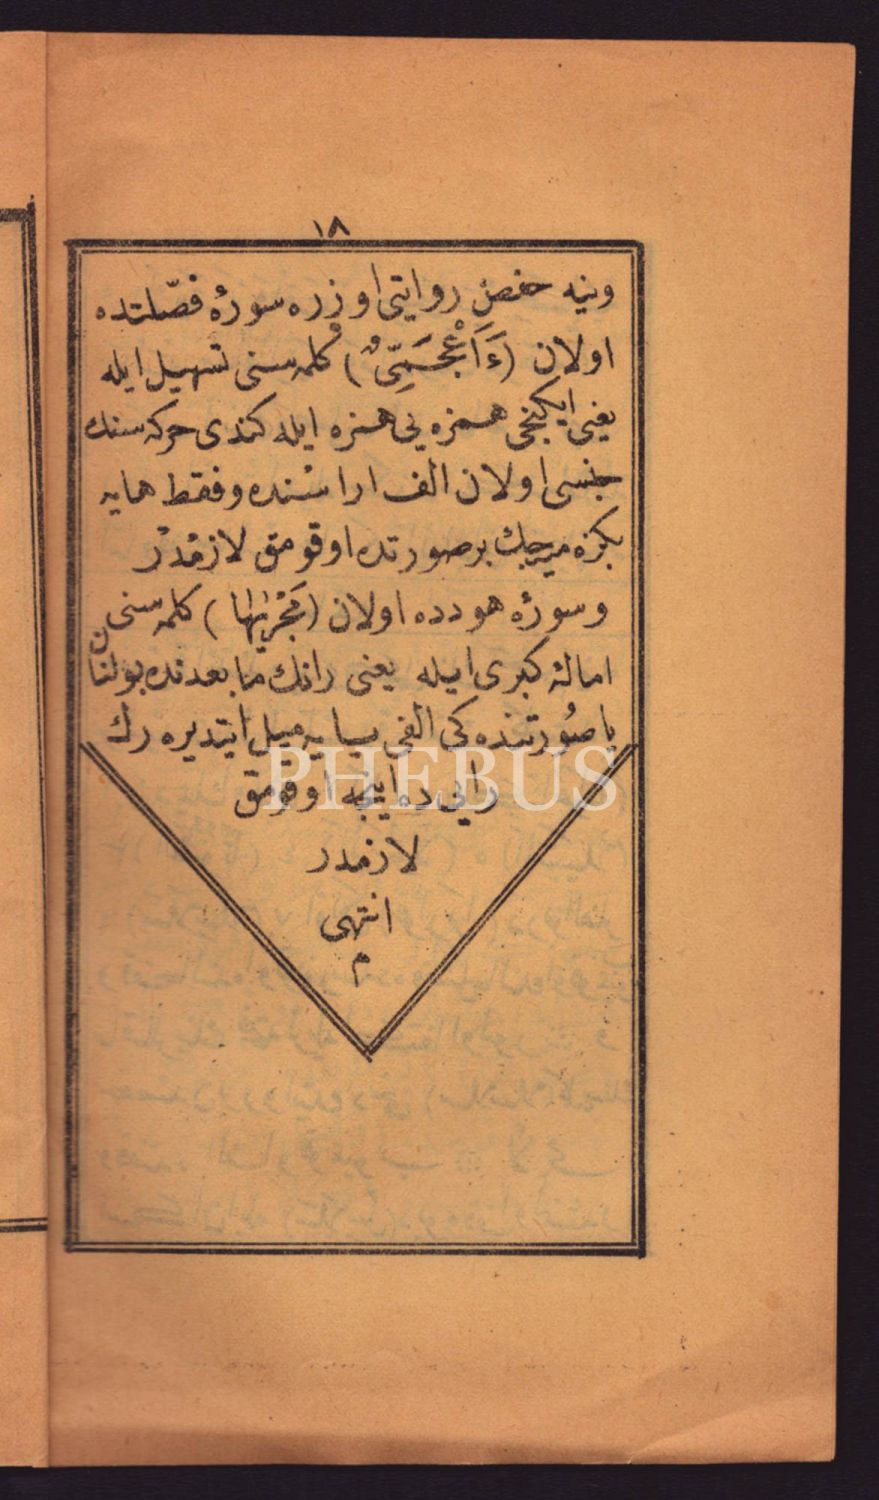 ١٨
وینه حفص روایتی اوزره سورهٔ فصّلتده
اولان (ءَاَعْجَمِیٌّ) كلمه‌سنی تسهیل ایله
یعنی ایكنجی همزه‌یی همزه ایله كندی حركه‌سنك
جنسی اولان الف اراسنده و فقط هایه
بكزه‌میه‌جك بر صورتده اوقومق لازمدر
و سورهٔ هودده اولان (مَجْرٰیهَا) كلمه‌سنی
امالهٔ كبری ایله یعنی رانك مابعدنده بولنان
یا صورتنده‌كی الفی یایه میل ایتدیره‌رك
رایی ده اینجه اوقومق
لازمدر
انتهی
م
PHEBUS